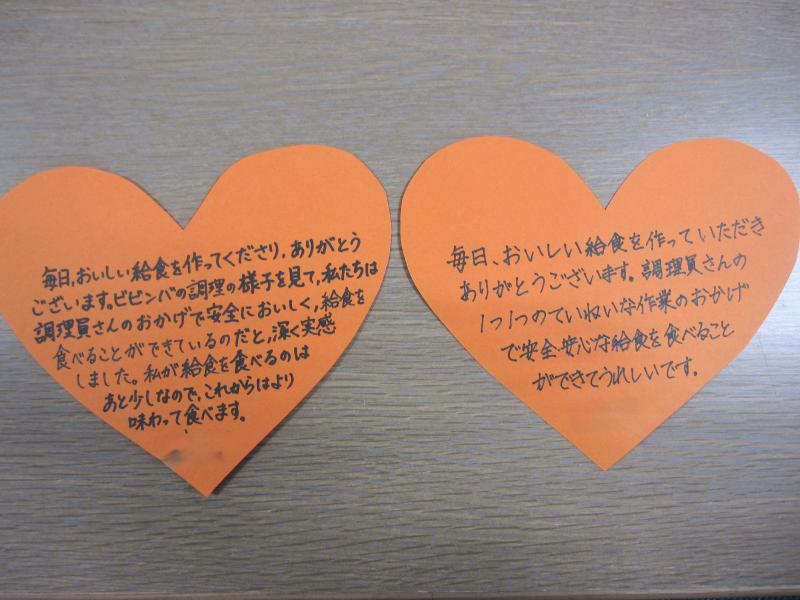 毎日,おいしい給食を作ってくださり,ありがとう
ございます。ビビンバの調理の様子を見て,私たちは
調理員さんのおかげで安全においしく,給食を
食べることができているのだと,深く実感
しました。私が給食を食べるのは
あと少しなので,これからはより
味わって食べます。
毎日、おいしい給食を作っていただき
ありがとうございます。調理員さんの
1つ1つのていねいな作業のおかげ
で安全・安心な給食を食べること
ができてうれしいです。